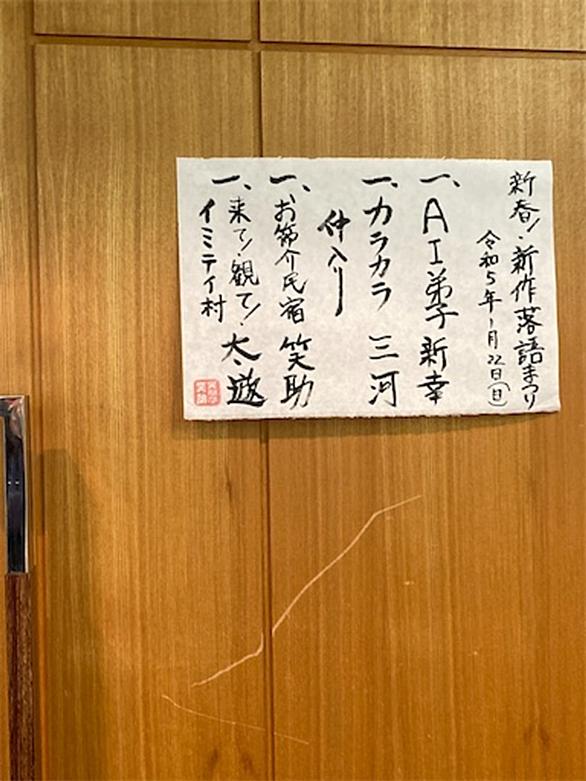 新春!新作落語まつり
令和5年1月22日(日)
一、AI弟子 新幸
一、カラカラ 三河
仲入り
一、お節介民宿 笑助
一、来て!観て!イミテイ村 大遊